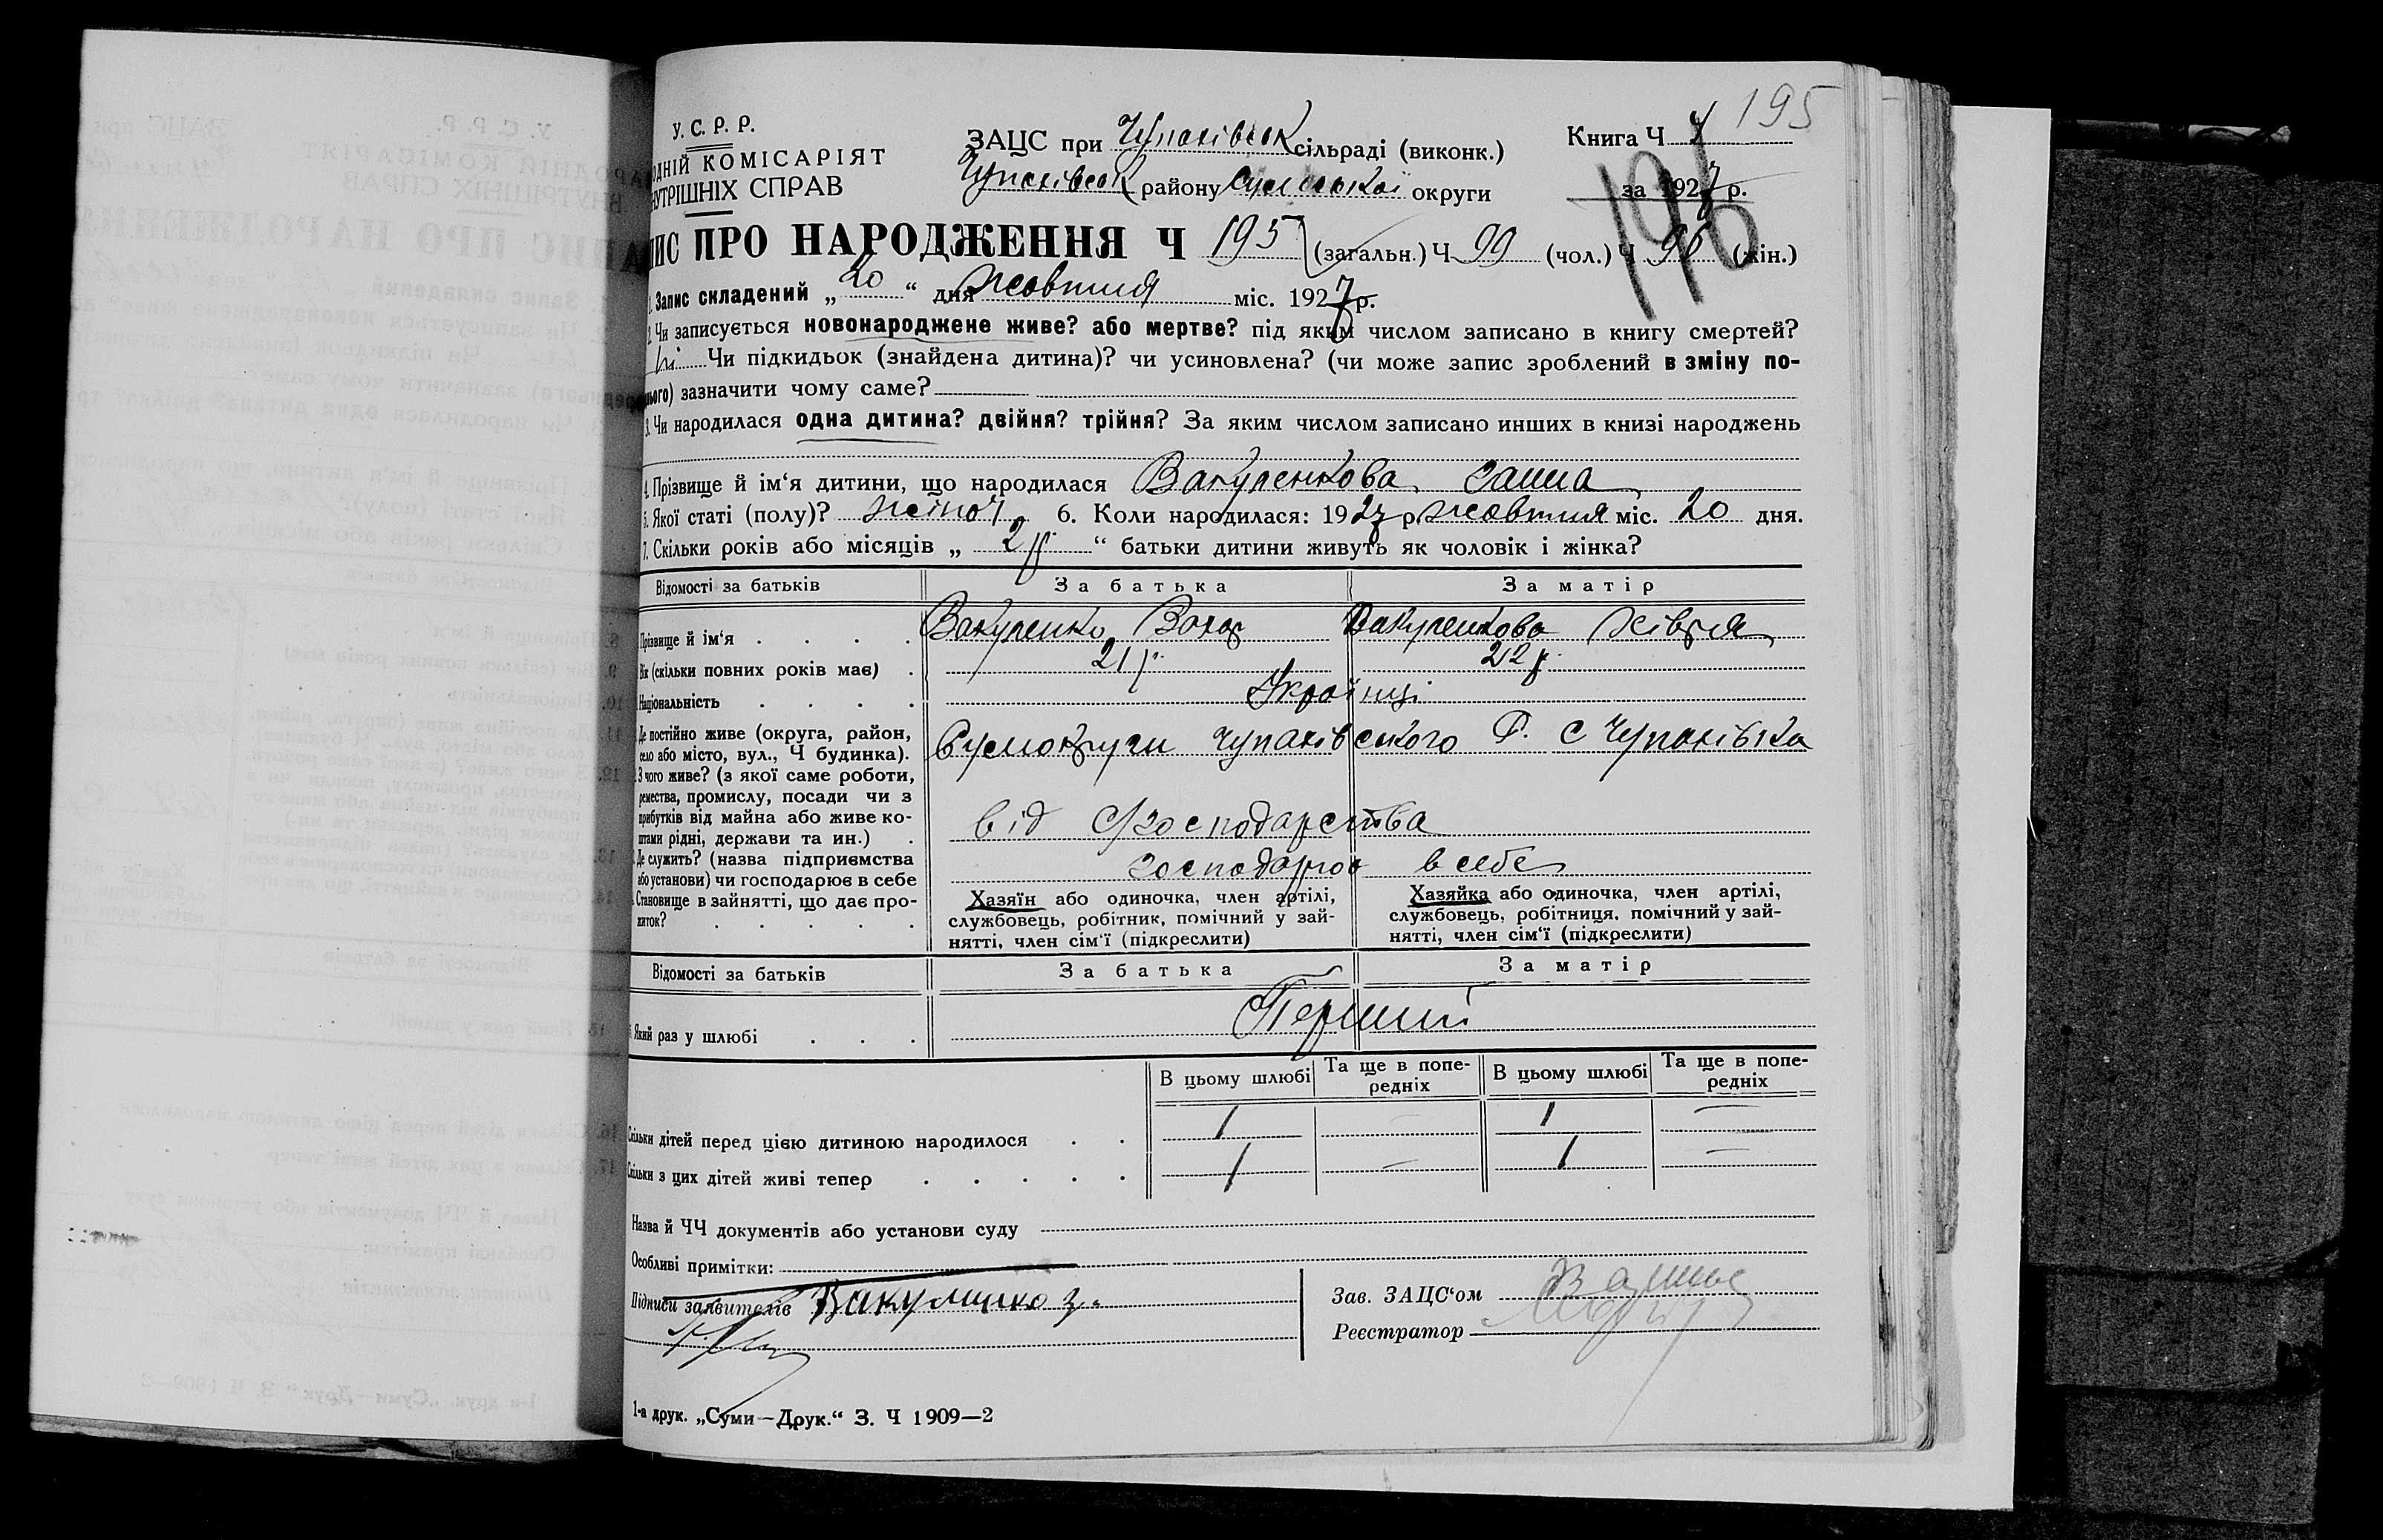 195
У. С. Р. Р.
ОДНІЙ КОМІСАРІЯТ
НУТРІШНІХ СПРАВ
ЗАЦС при Чупахівськ сільраді (виконк.)
Чупахівськ району Сумської округи
Книга Ч
за 1927 р.
196
ПИС ПРО НАРОДЖЕННЯ Ч 195 (загальн.) Ч 99 (чол.) Ч 96 (жін.)
1. Запис складений „20“ дня жовтня міс. 1927 р.
2. Чи записується новонароджене живе? або мертве? під яким числом записано в книгу смертей?
ні Чи підкидьок (знайдена дитина)? чи усиновлена? (чи може запис зроблений в зміну по-
нього) зазначити чому саме?
3. Чи народилася одна дитина? двійня? трійня? За яким числом записано инших в книзі народжень
4. Прізвище й ім‘я дитини, що народилася Вакуленкова Ганна
5. Якої статі (полу)? жіночої 6. Коли народилася: 1927 р жовтня міс. 20 дня.
7. Скільки років або місяців „ 2 р. “ батьки дитини живуть як чоловік і жінка?
Відомості за батьків За батька За матір
Прізвище й ім‘я . . . . Вакуленко Захар Вакуленкова Хівря
Вік (скільки повних років має) . 21 р. 22 р.
Національність . . . . Українці
Де постійно живе (округа, район,
село або місто, вул., Ч будинка). Сумокруги Чупахівського Р. с Чупахівка
З чого живе? (з якої саме роботи,
ремества, промислу, посади чи з
прибутків від майна або живе ко-
штами рідні, держави та ин.) . від с/господарства
Де служить? (назва підприємства
або установи) чи господарює в себе господарює в себе
Становище в зайнятті, що дає про-
житток? . . . . .
Хазяїн або одиночка, член артілі,
службовець, робітник, помічний у зай-
нятті, член сім‘ї (підкреслити)
Хазяйка або одиночка, член артілі,
службовець, робітниця, помічний у зай-
нятті, член сім‘ї (підкреслити)
Відомості за батьків За батька За матір
Який раз у шлюбі . . . Перший
В цьому шлюбі Та ще в попе-
редніх В цьому шлюбі Та ще в попе-
редніх
Скільки дітей перед цією дитиною народилося . . 1 — 1 —
Скільки з цих дітей живі тепер . . . . . 1 — 1 —
Назва й ЧЧ документів або установи суду
Особливі примітки:
Підписи заявителів Вакуленко З.
Зав. ЗАЦС‘ом
Реєстратор
1-а друк. „Суми—Друк.“ З. Ч 1909—2